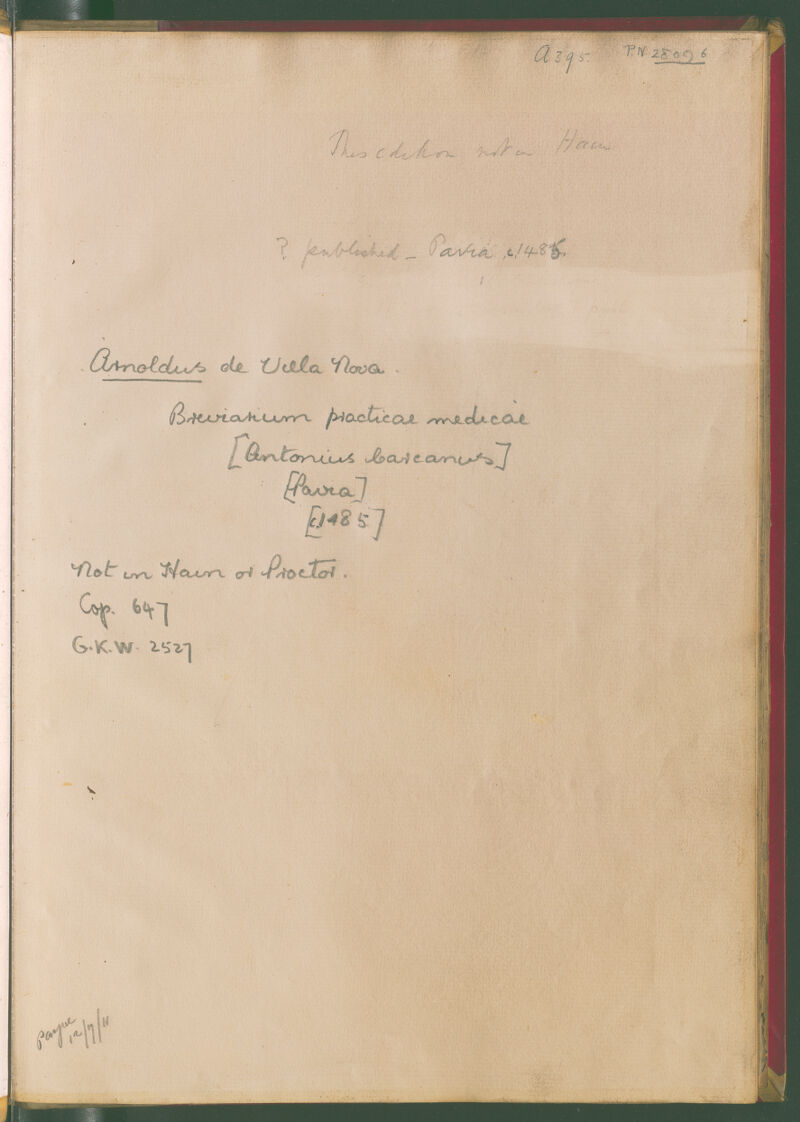 A395. PN 28096
This edition not in Hain
? published - Pavia c.1485.
Arnoldus de Villa Nova.
Breviarium practicae medicae
[Antonius Carcanus]
[Pavia]
[c.1485]
Not in Hain or Proctor.
Cop. 647
G.K.W. 2527
Payne
12/7/11